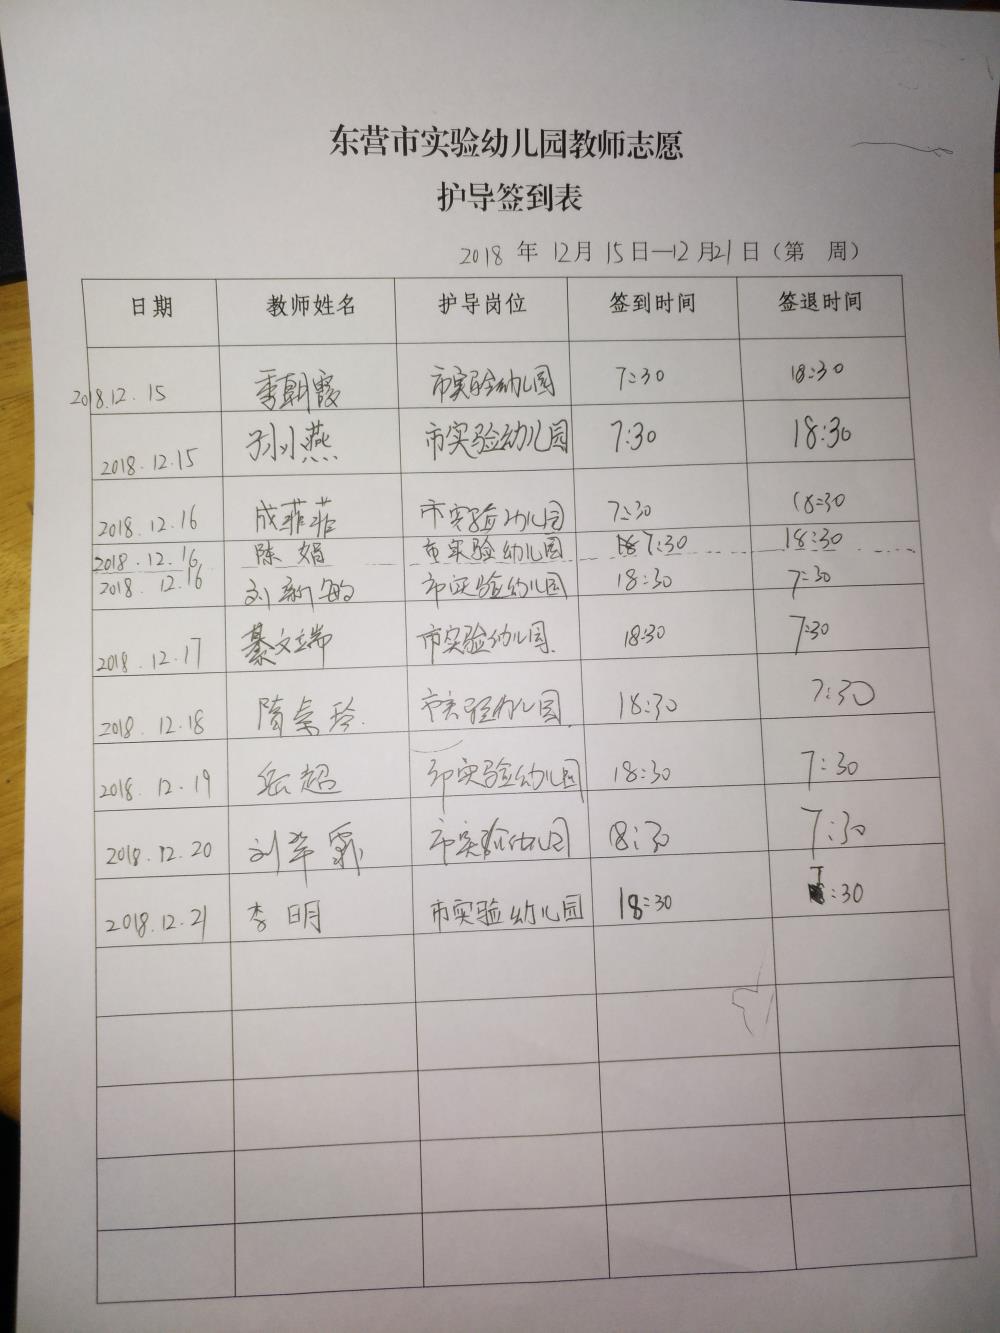 东营市实验幼儿园教师志愿
护导签到表
2018 年 12月 15日—12月21日（第 周）
日期 教师姓名 护导岗位 签到时间 签退时间
2018.12.15 季朝霞 市实验幼儿园 7:30 18:30
2018.12.15 孙小燕 市实验幼儿园 7:30 18:30
2018.12.16 成菲菲 市实验幼儿园 7:30 18:30
2018.12.16 陈娟 市实验幼儿园 7:30 18:30
2018.12.16 刘新敏 市实验幼儿园 18:30 7:30
2018.12.17 綦文瑞 市实验幼儿园. 18:30 7:30
2018.12.18 隋 玲. 市实验幼儿园. 18:30 7:30
2018.12.19 岳超 市实验幼儿园 18:30 7:30
2018.12.20 刘 霖 市实验幼儿园 18:30 7:30
2018.12.21 李明 市实验幼儿园 18:30 7:30